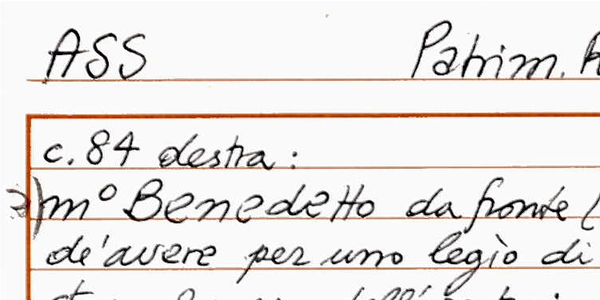 ASS Patrim.
c. 84 destra:
m° Benedetto da fronte (
de' avere per uno legìo di